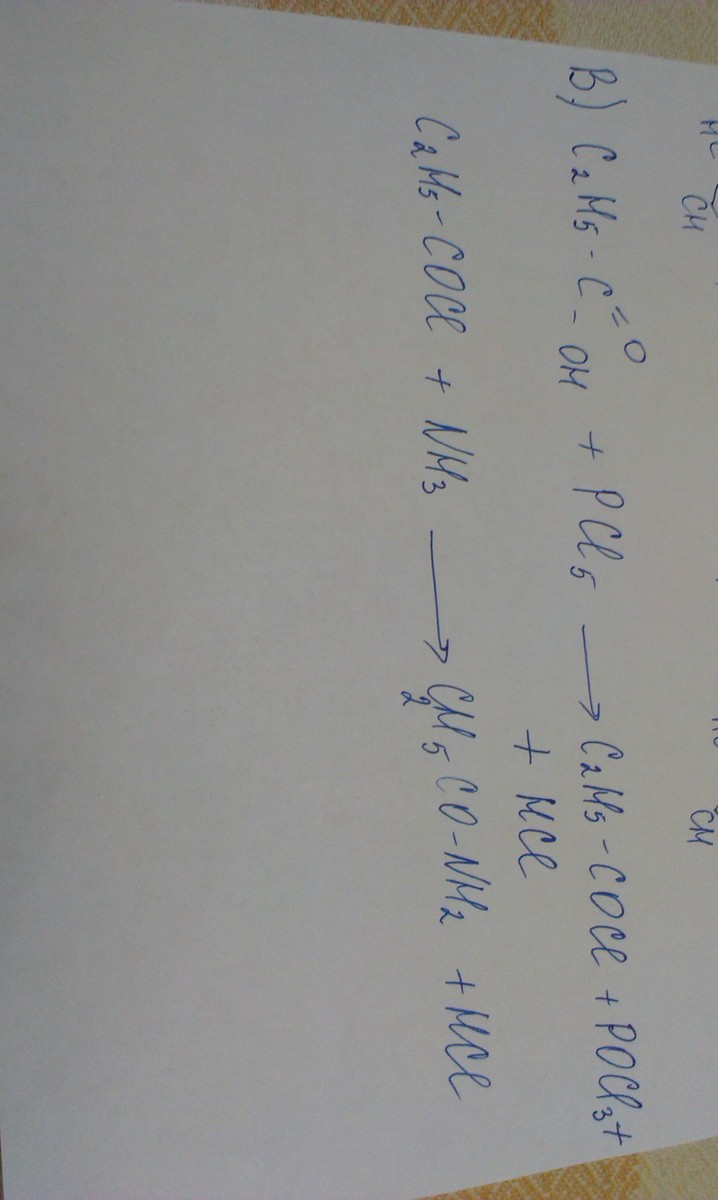 В) C₂H₅-C=O-OH + PCl₅ → C₂H₅-COCl + POCl₃ +
+ HCl
C₂H₅-COCl + NH₃ → C₂H₅CO-NH₂ + HCl
HC
CH
CH